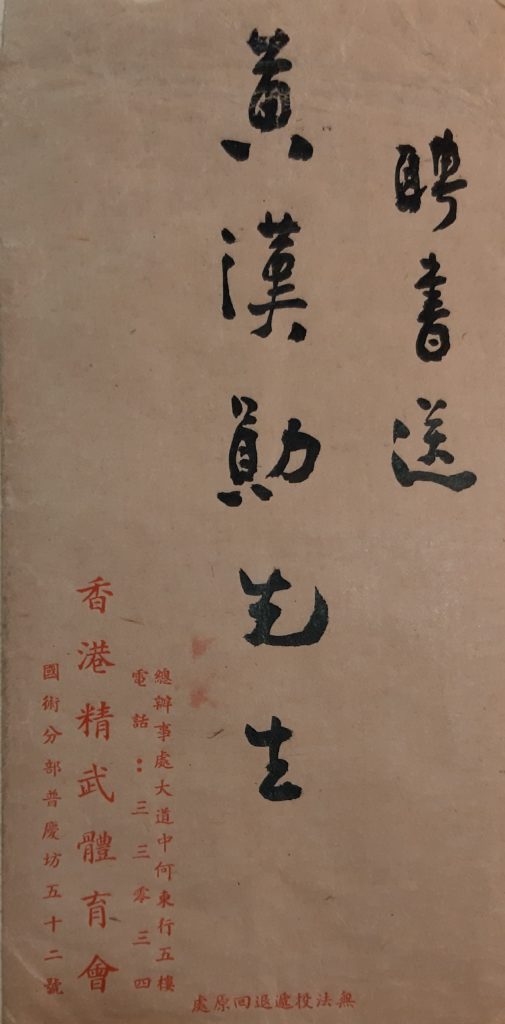 聘書送
黃漢勛先生
總辦事處大道中何東行五樓
電話：三三零三四
香港精武體育會
國術分部普慶坊五十二號
無法投遞退回原處